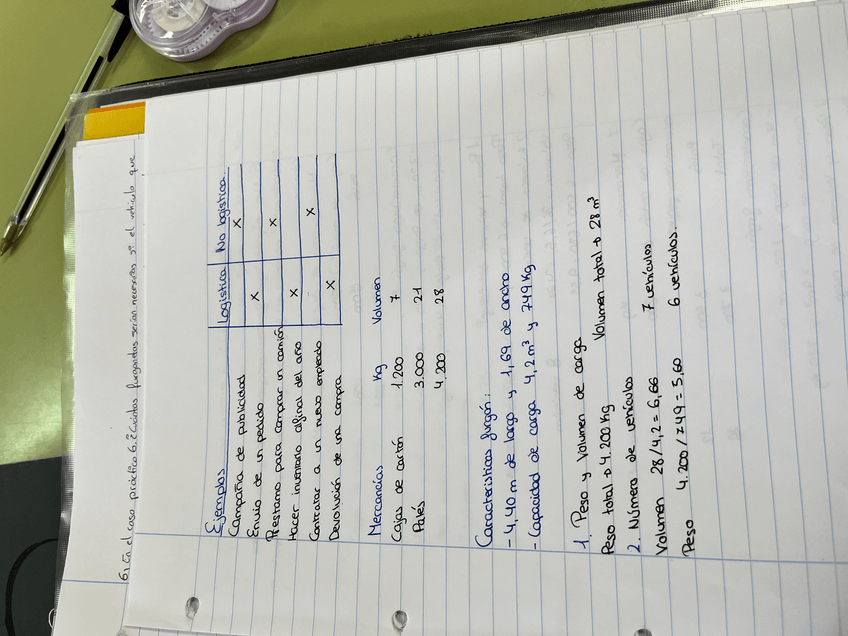 6. En el caso práctico 6. ¿Cuántas furgonetas serían necesarias si el vehículo que
Ejemplos Logística No logística
Campaña de publicidad X
Envío de un pedido X
Préstamo para comprar un camión X
Hacer inventario al final del año X
Contratar a un nuevo empleado X
Devolución de una compra X
Mercancías Kg Volumen
Cajas de cartón 1.200 7
Palés 3.000 21
4.200 28
Características furgón:
- 4,40 m de largo y 1,69 de ancho
- Capacidad de carga 4,2 m³ y 749 Kg
1. Peso y Volumen de carga
Peso total → 4.200 Kg Volumen total → 28 m³
2. Número de vehículos
Volumen 28/4,2 = 6,66 7 vehículos
Peso 4.200/749 = 5,60 6 vehículos.